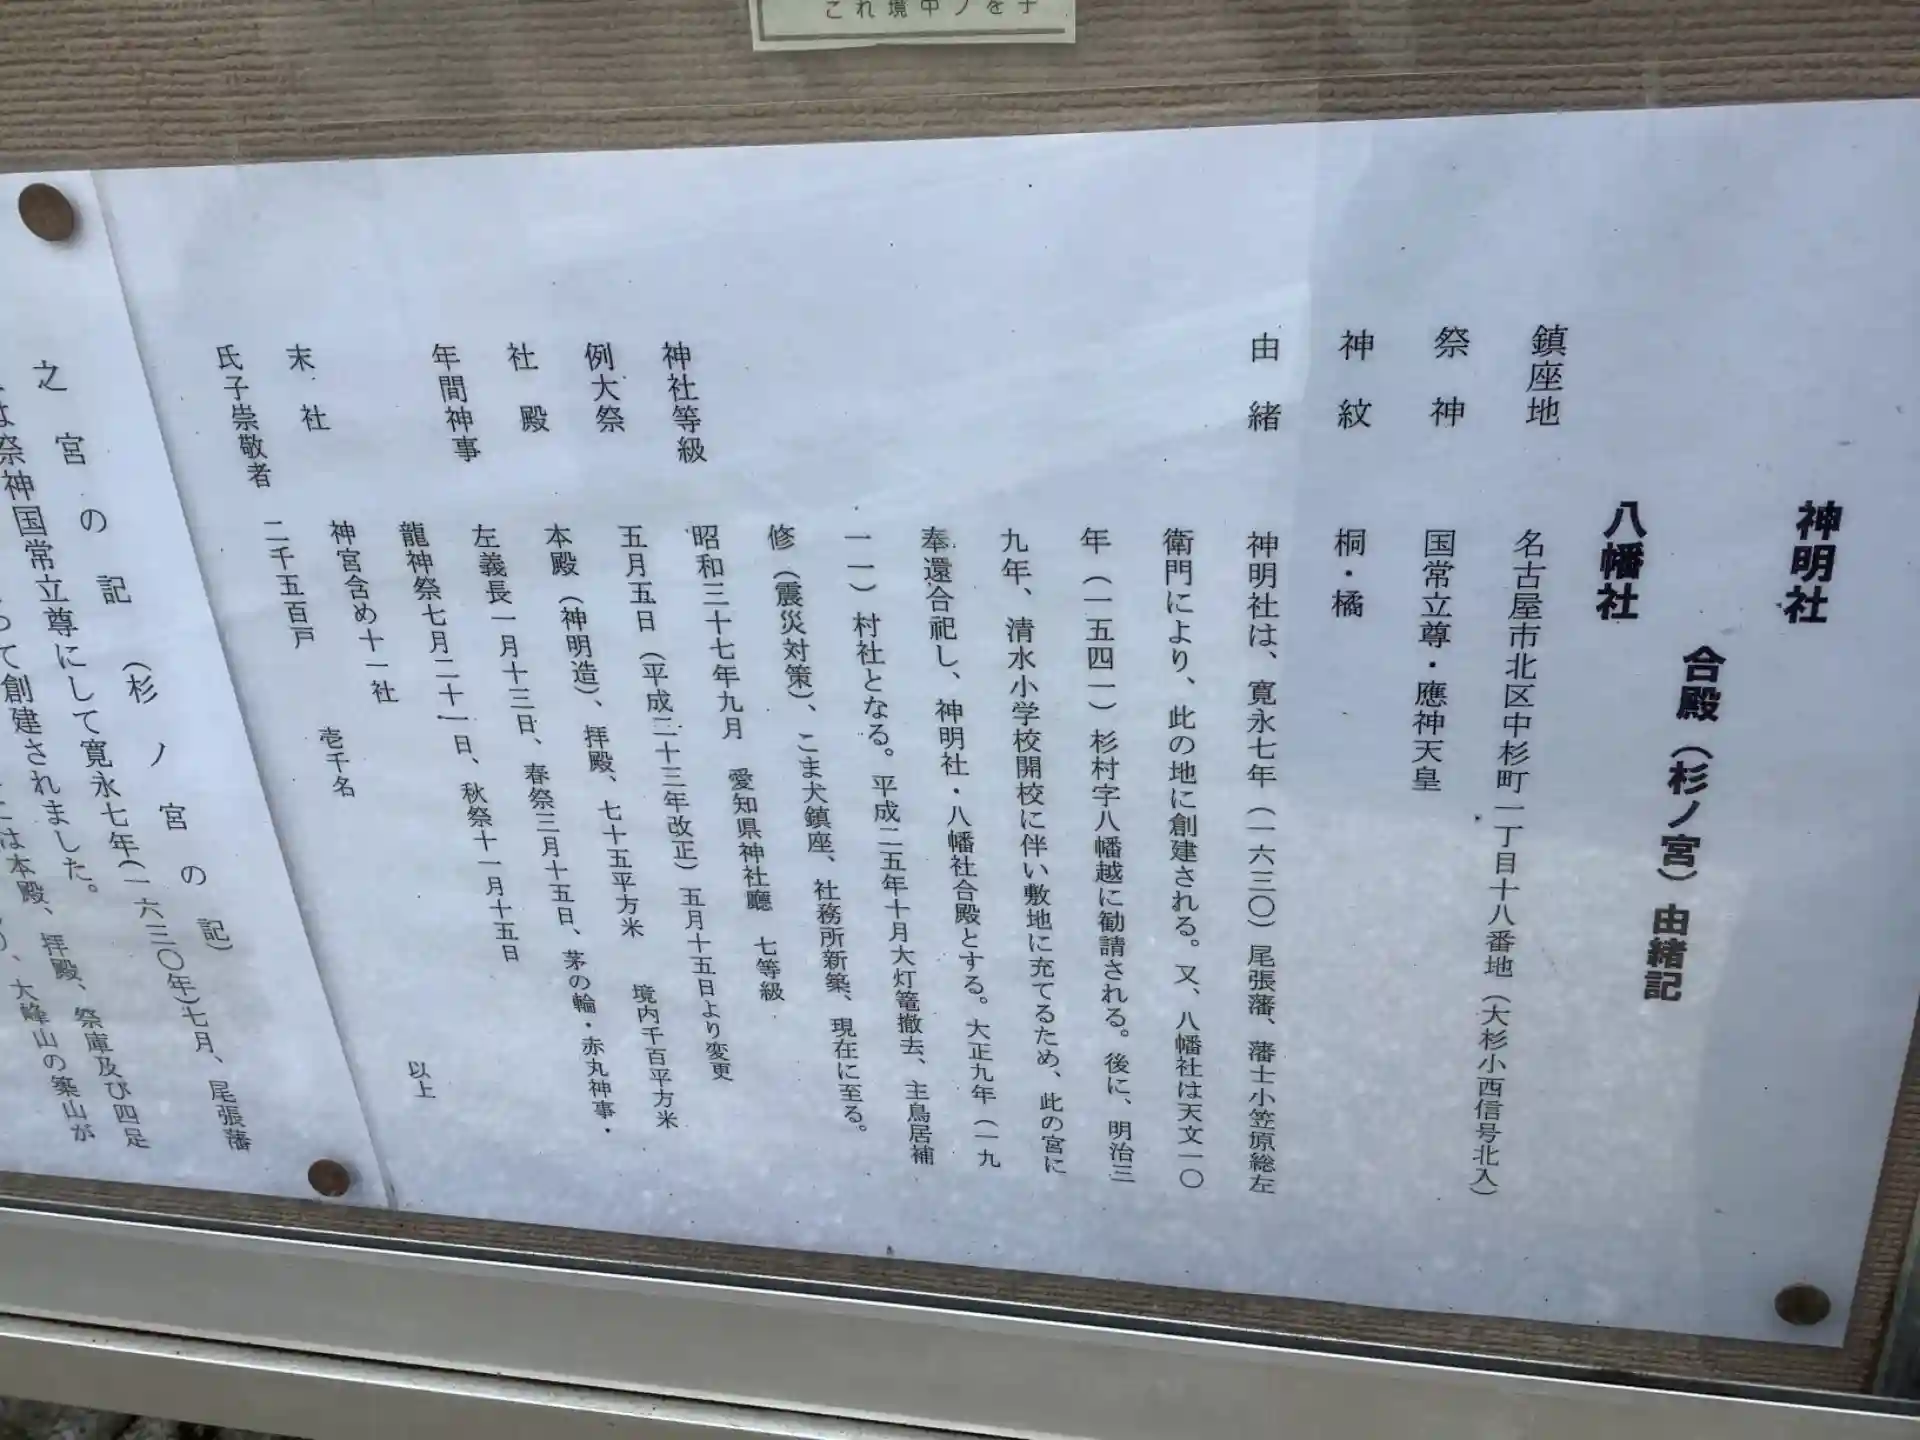 神明社
八幡社
合殿（杉ノ宮）由緒記
鎮座地 名古屋市北区中杉町一丁目十八番地（大杉小西信号北入）
祭神 国常立尊・應神天皇
神紋 桐・橘
由緒 神明社は、寛永七年（一六三〇）尾張藩、藩士小笠原総左
衛門により、此の地に創建される。又、八幡社は天文一〇
年（一五四一）杉村字八幡越に勧請される。後に、明治三
九年、清水小学校開校に伴い敷地に充てるため、此の宮に
奉還合祀し、神明社・八幡社合殿とする。大正九年（一九
一一）村社となる。平成二五年十月大灯篭撤去、主鳥居補
修（震災対策）、こま犬鎮座、社務所新築、現在に至る。
神社等級 昭和三十七年九月 愛知県神社廳 七等級
例大祭 五月五日（平成二十三年改正）五月十五日より変更
社殿 本殿（神明造）、拝殿、七十五平方米 境内千百平方米
年間神事 左義長一月十三日、春祭三月十五日、茅の輪・赤丸神事・
龍神祭七月二十一日、秋祭十一月十五日
末社 神宮含め十一社
氏子崇敬者 二千五百戸 壱千名
以上
之宮の記（杉ノ宮の記）
は祭神国常立尊にして寛永七年(一六三〇年)七月、尾張藩
って創建されました。
は本殿、拝殿、祭庫及び四足
、大峰山の築山が
これ境中ノを子